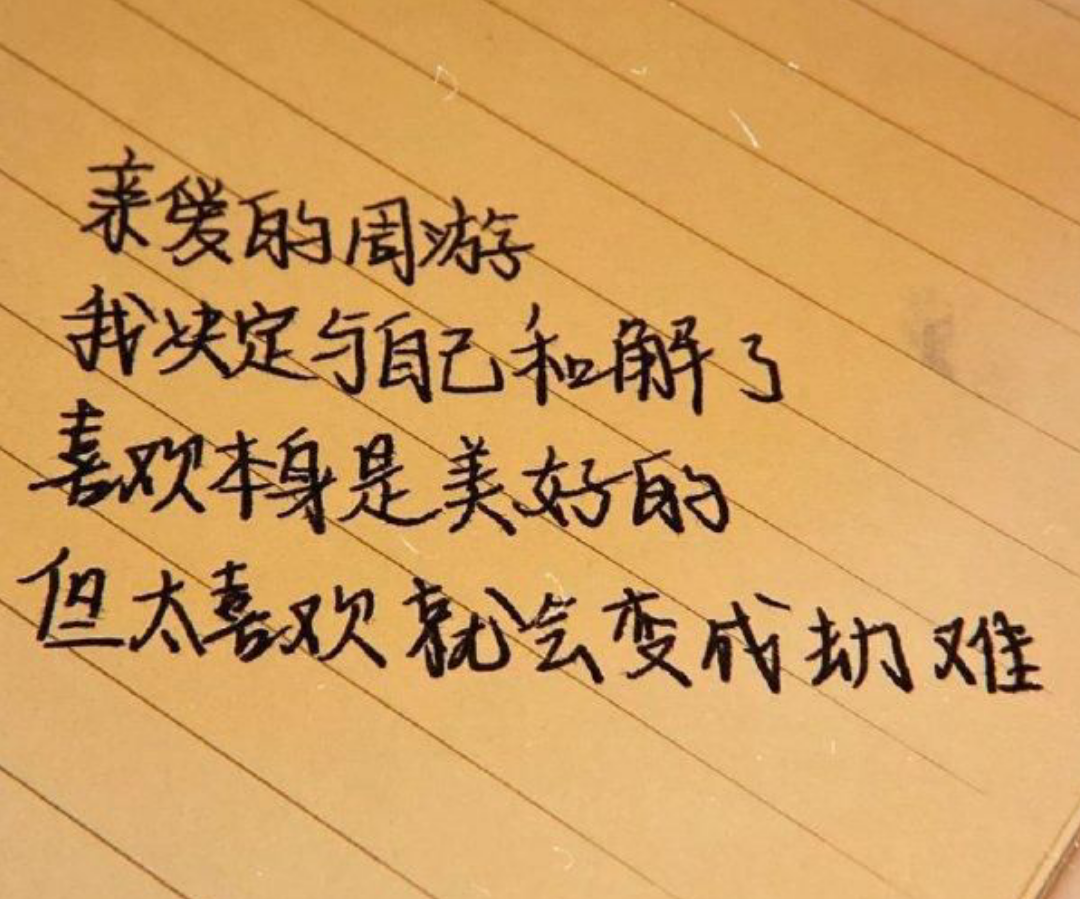 亲爱的周游
我决定与自己和解了
喜欢本身是美好的
但太喜欢就会变成劫难